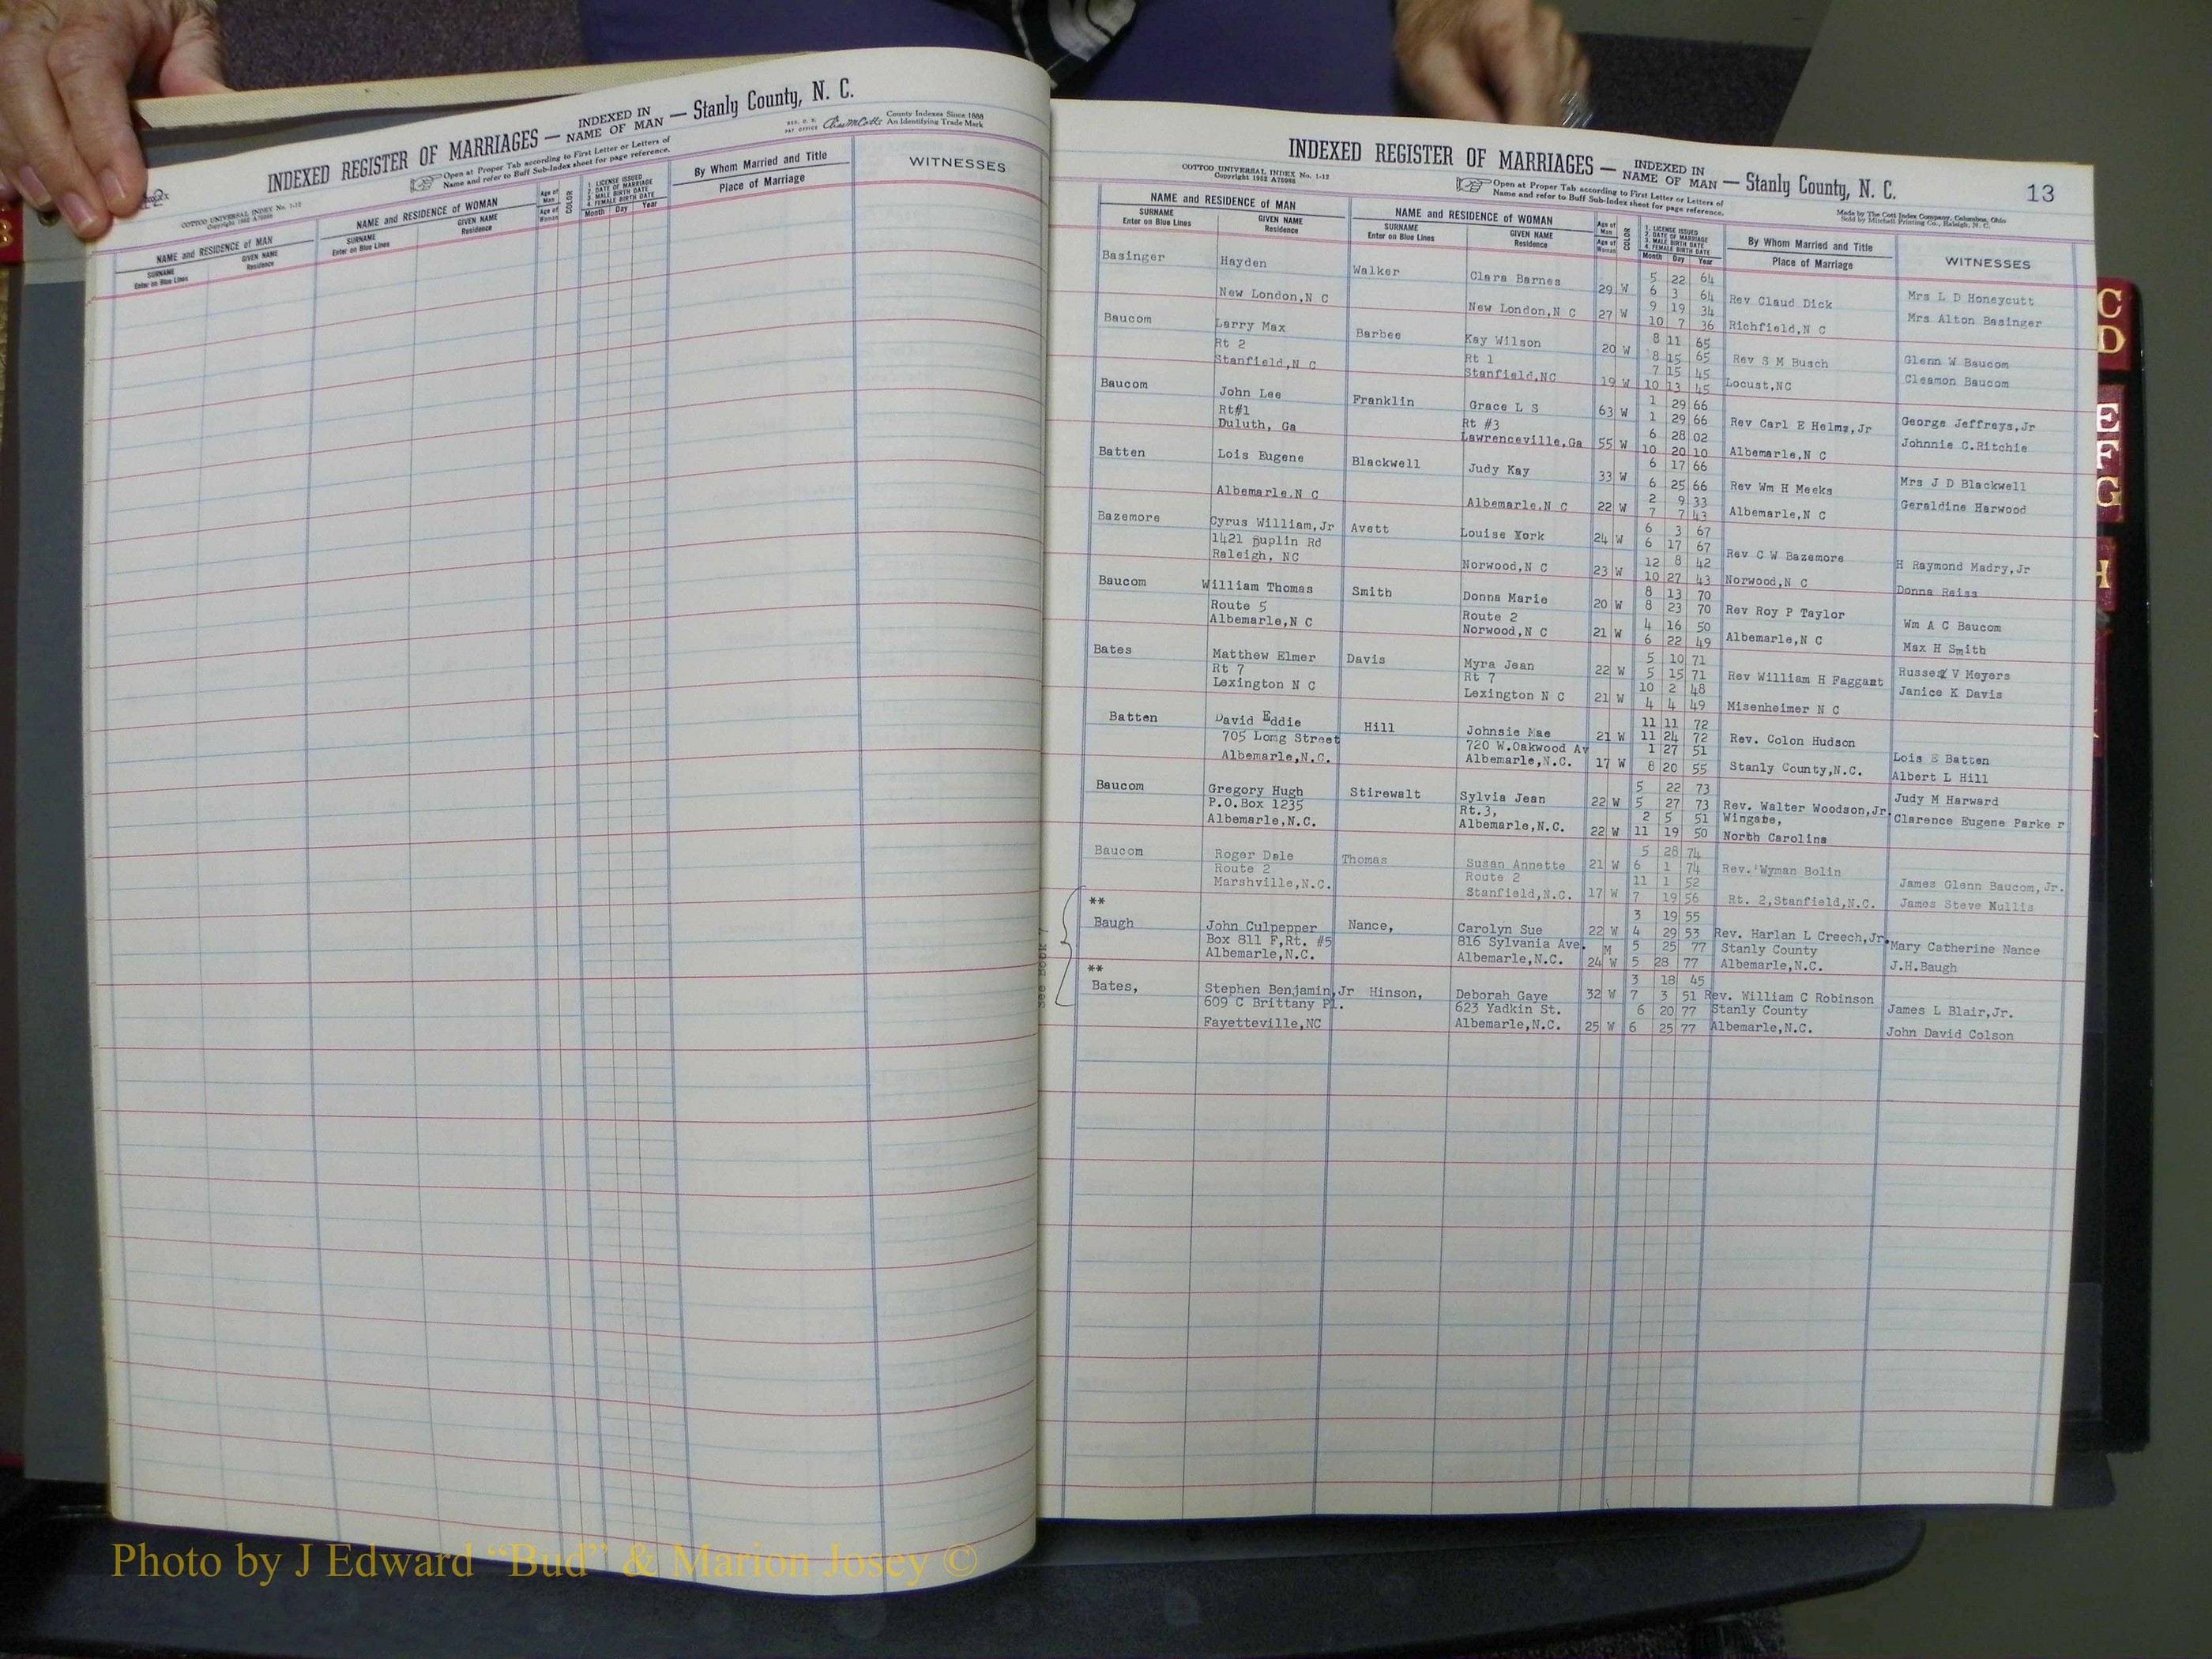 INDEXED REGISTER OF MARRIAGES — INDEXED IN NAME OF MAN — Stanly County, N. C.
County Indexes Since 1888
An Identifying Trade Mark
Open at Proper Tab according to First Letter or Letters of
Name and refer to Buff Sub-Index sheet for page reference.
COTTCO UNIVERSAL INDEX No. 1-12
NAME and RESIDENCE of MAN
SURNAME
Enter on Blue Lines
GIVEN NAME
Residence
NAME and RESIDENCE of WOMAN
SURNAME
Enter on Blue Lines
GIVEN NAME
Residence
Age of Man
Age of Woman
COLOR
1. LICENSE ISSUED
2. DATE OF MARRIAGE
3. MALE BIRTH DATE
4. FEMALE BIRTH DATE
Month Day Year
By Whom Married and Title
Place of Marriage
WITNESSES
INDEXED REGISTER OF MARRIAGES — INDEXED IN NAME OF MAN — Stanly County, N. C.
13
COTTCO UNIVERSAL INDEX No. 1-12
Copyright 1952 A70098
Open at Proper Tab according to First Letter or Letters of
Name and refer to Buff Sub-Index sheet for page reference.
Made by The Cott Index Company, Columbus, Ohio
Sold by Mitchell Printing Co., Raleigh, N. C.
NAME and RESIDENCE of MAN
SURNAME
Enter on Blue Lines
GIVEN NAME
Residence
NAME and RESIDENCE of WOMAN
SURNAME
Enter on Blue Lines
GIVEN NAME
Residence
Age of Man
Age of Woman
COLOR
1. LICENSE ISSUED
2. DATE OF MARRIAGE
3. MALE BIRTH DATE
4. FEMALE BIRTH DATE
Month Day Year
By Whom Married and Title
Place of Marriage
WITNESSES
Basinger Hayden Walker Clara Barnes 5 22 64
29 W 6 3 64 Rev Claud Dick Mrs L D Honeycutt
New London,N C New London,N C 9 19 34 Mrs Alton Basinger
27 W 10 7 36 Richfield,N C
Baucom Larry Max Barbee Kay Wilson 8 11 65
Rt 2 Rt 1 20 W 8 15 65 Rev S M Busch Glenn W Baucom
Stanfield,N C Stanfield,NC 7 15 45 Cleamon Baucom
19 W 10 13 45 Locust,NC
Baucom John Lee Franklin Grace L S 1 29 66
Rt#1 Rt #3 63 W 1 29 66 Rev Carl E Helms,Jr George Jeffreys,Jr
Duluth, Ga Lawrenceville,Ga 6 28 02 Johnnie C.Ritchie
55 W 10 20 10 Albemarle,N C
Batten Lois Eugene Blackwell Judy Kay 6 17 66
33 W 6 25 66 Rev Wm H Meeks Mrs J D Blackwell
Albemarle.N C Albemarle.N C 2 9 33 Geraldine Harwood
22 W 7 7 43 Albemarle,N C
Bazemore Cyrus William,Jr Avett Louise York 6 3 67
1421 Duplin Rd 24 W 6 17 67 Rev C W Bazemore
Raleigh, NC Norwood,N C 12 8 42 H Raymond Madry,Jr
23 W 10 27 43 Norwood,N C Donna Reiss
Baucom William Thomas Smith Donna Marie 8 13 70
Route 5 Route 2 20 W 8 23 70 Rev Roy P Taylor
Albemarle,N C Norwood,N C 4 16 50 Wm A C Baucom
21 W 6 22 49 Albemarle,N C Max H Smith
Bates Matthew Elmer Davis Myra Jean 5 10 71
Rt 7 Rt 7 22 W 5 15 71 Rev William H Faggart Russel V Meyers
Lexington N C Lexington N C 10 2 48 Janice K Davis
21 W 4 4 49 Misenheimer N C
Batten David Eddie Hill Johnsie Mae 11 11 72
705 Long Street 720 W.Oakwood Av 21 W 11 24 72 Rev. Colon Hudson
Albemarle,N.C. Albemarle,N.C. 1 27 51 Lois E Batten
17 W 8 20 55 Stanly County,N.C. Albert L Hill
Baucom Gregory Hugh Stirewalt Sylvia Jean 5 22 73 Judy M Harward
P.O.Box 1235 Rt.3, 22 W 5 27 73 Rev. Walter Woodson,Jr.
Albemarle,N.C. Albemarle,N.C. 2 5 51 Wingate, Clarence Eugene Parke r
22 W 11 19 50 North Carolina
Baucom Roger Dale Thomas Susan Annette 5 28 74
Route 2 Route 2 21 W 6 1 74 Rev. Wyman Bolin
Marshville,N.C. Stanfield,N.C. 11 1 52 James Glenn Baucom,Jr.
17 W 7 19 56 Rt. 2,Stanfield,N.C. James Steve Mullis
See Book 7
**
Baugh John Culpepper Nance, Carolyn Sue 3 19 55
Box 811 F,Rt. #5 816 Sylvania Ave. 22 W 4 29 53 Rev. Harlan L Creech,Jr.
Albemarle,N.C. Albemarle,N.C. M 5 25 77 Stanly County Mary Catherine Nance
24 W 5 28 77 Albemarle,N.C. J.H.Baugh
**
Bates, Stephen Benjamin,Jr Hinson, Deborah Gaye 3 18 45
609 C Brittany Pl. 623 Yadkin St. 32 W 7 3 51 Rev. William C Robinson
6 20 77 Stanly County James L Blair,Jr.
Fayetteville,NC Albemarle,N.C. 25 W 6 25 77 Albemarle,N.C. John David Colson
C
D
E
F
G
H
Photo by J Edward “Bud” & Marion Josey ©